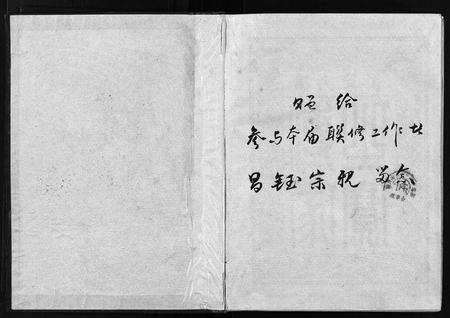 赠给
参与本届联修工作:
昌钰宗親 留念